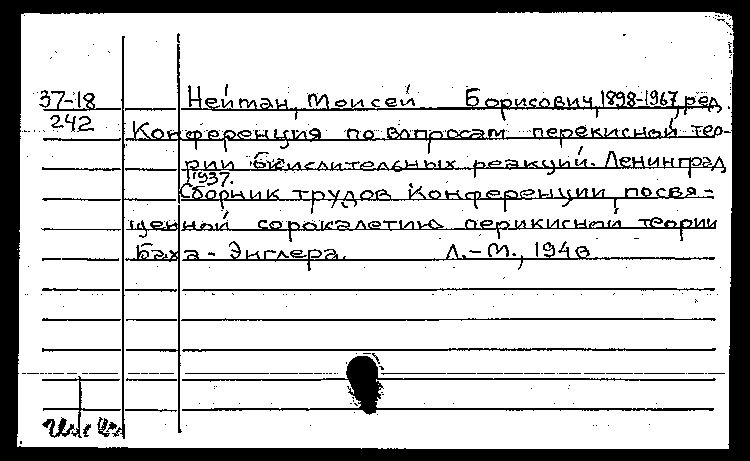 37-18 Нейман, Моисей Борисович, 1898-1967, ред.
242 Конференция по вопросам перекисной тео-
рии окислительных реакций. Ленинград
1937.
Сборник трудов Конференции, посвя-
щенной сорокалетию перикисной теории
Баха - Энглера. Л.-М., 1946